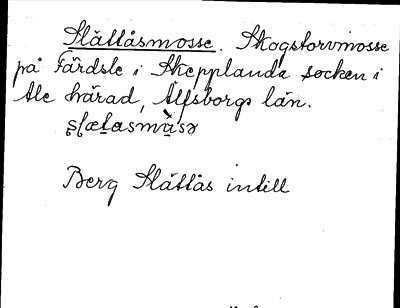 Slättåsmosse. Skogstorvmosse
på Färdsle i Skepplanda socken i
Ale härad, Älfsborgs län.
Berg Slättås intill